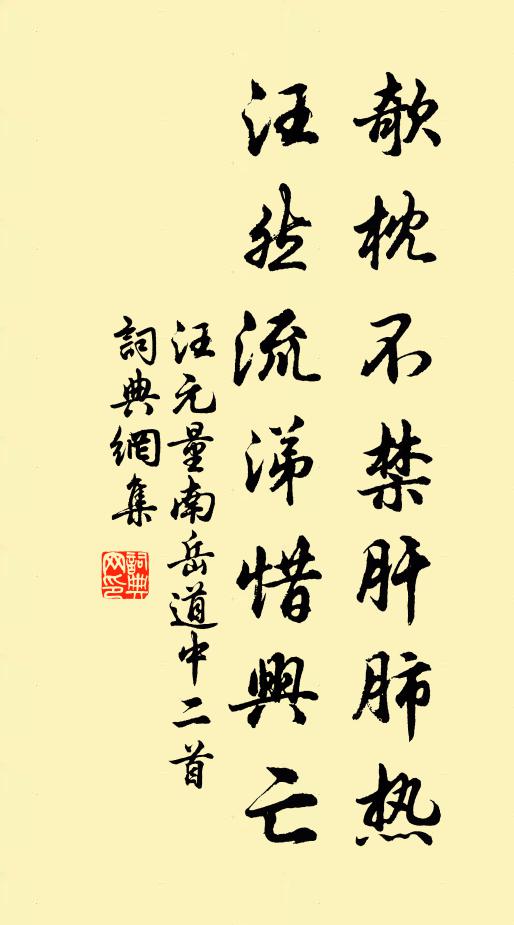 欹枕不禁肝肺热
汪然流涕惜興亡
汪元量南岳道中二首
詞典網集
詞典网印